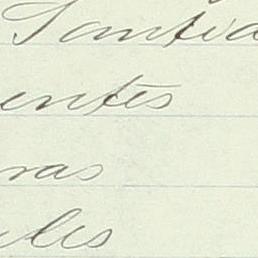 Santia
entes
ras
les